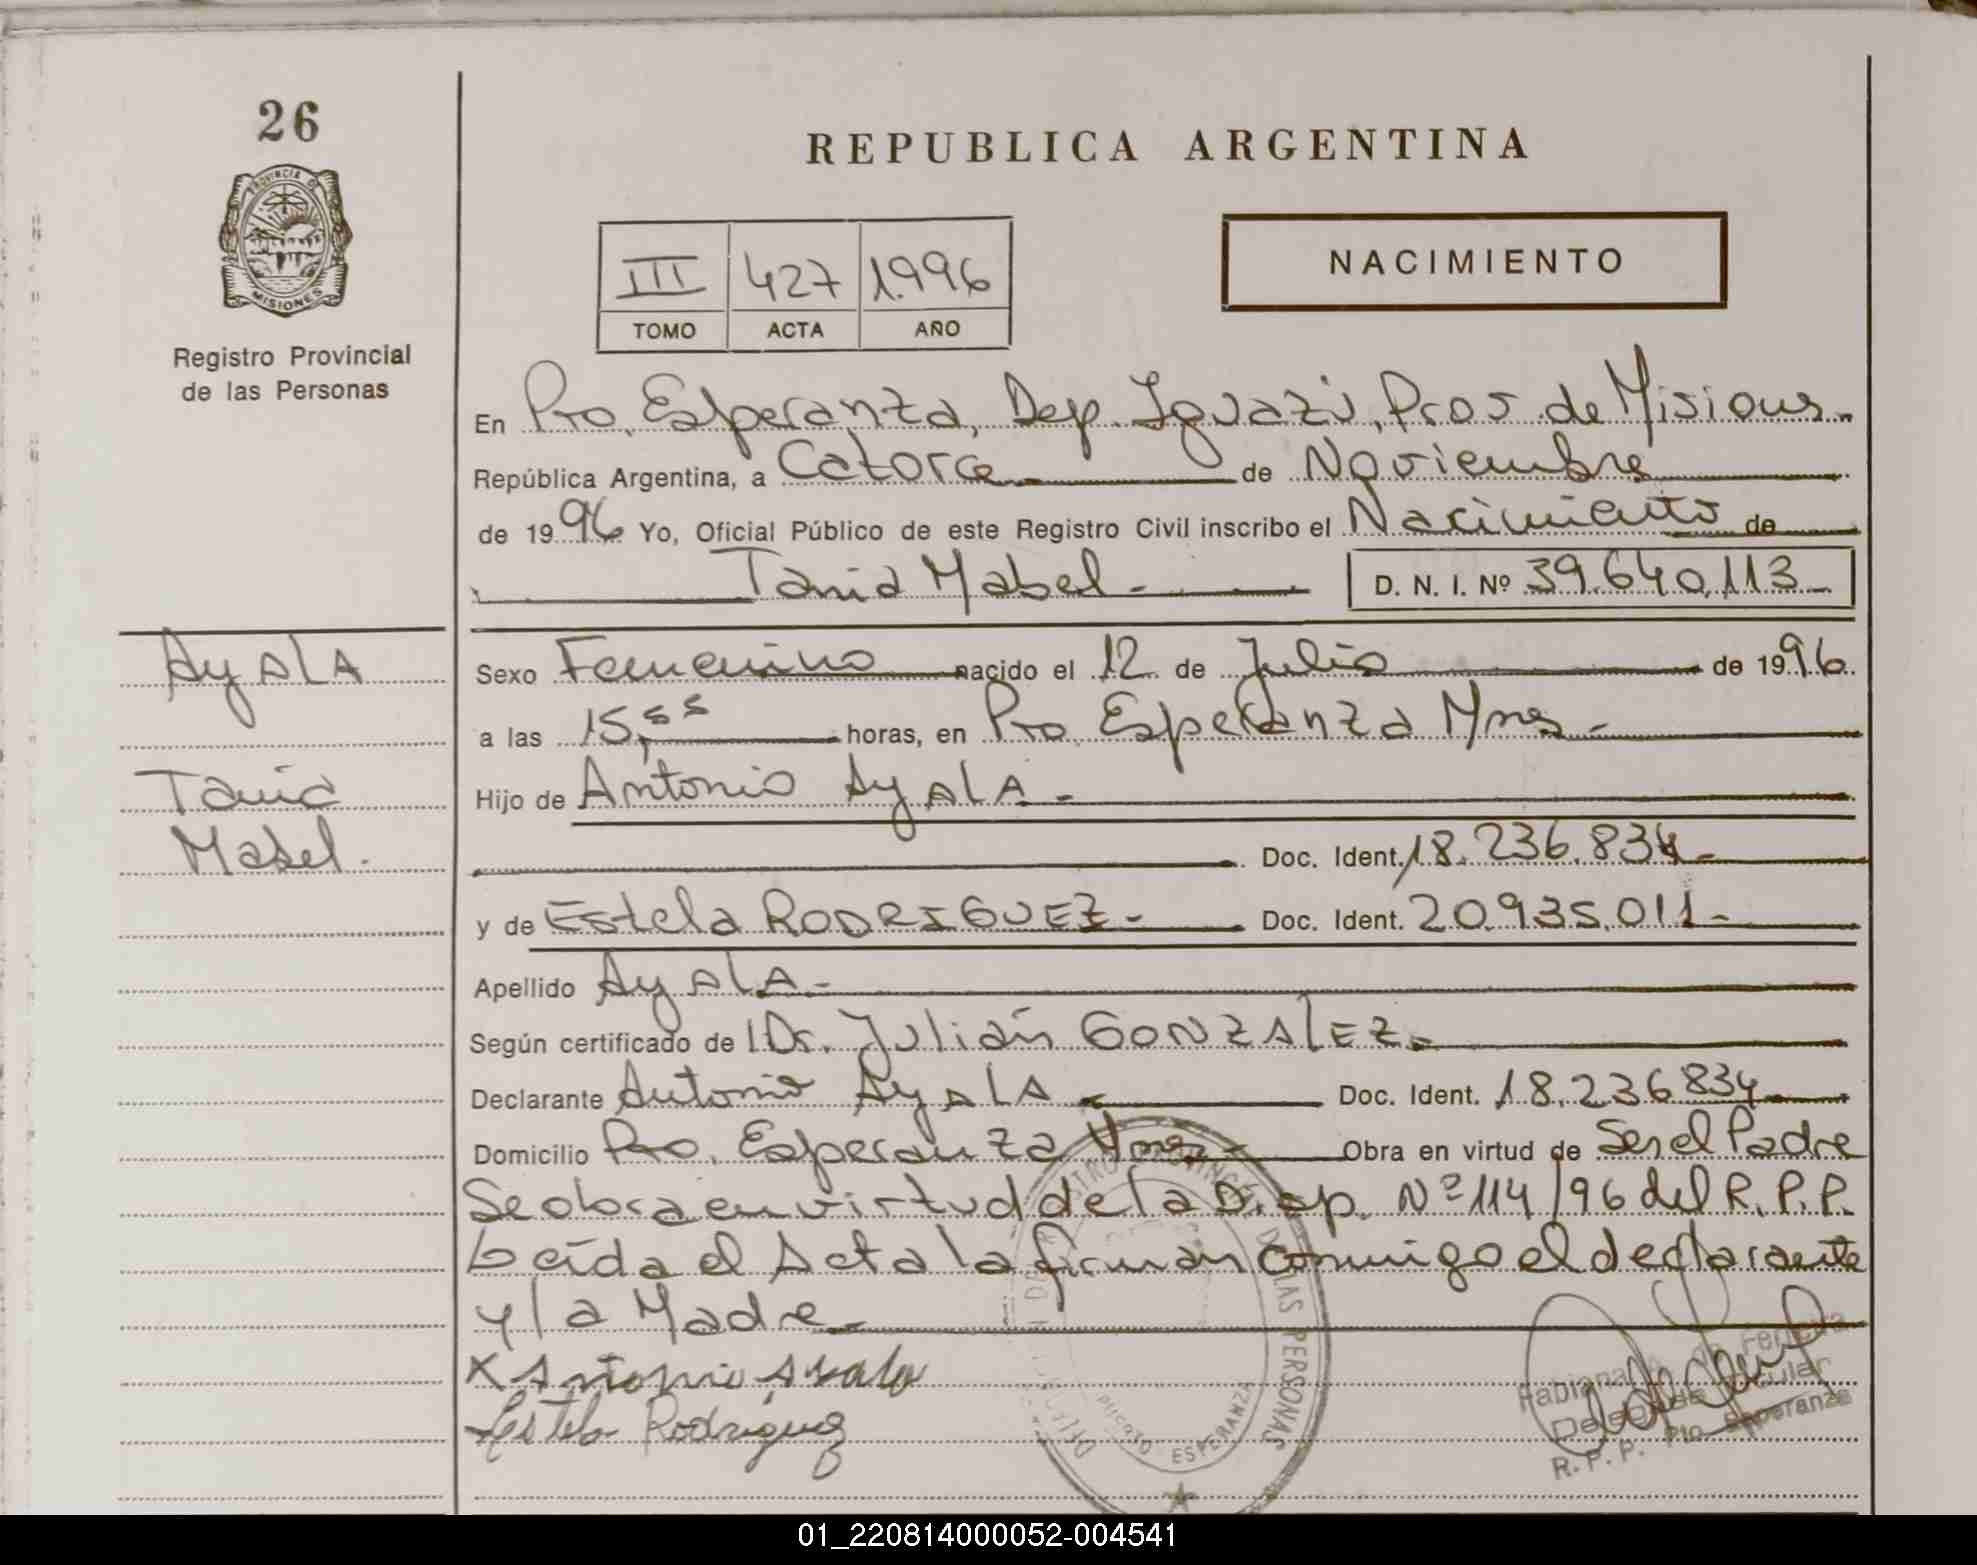 26
PROVINCIA DE
MISIONES
Registro Provincial
de las Personas
REPUBLICA ARGENTINA
III 427 1.996
TOMO ACTA AÑO
NACIMIENTO
En Pto. Esperanza, Dep. Iguazú, Prov. de Misiones.-
República Argentina, a Catorce de Noviembre
de 1996 Yo, Oficial Público de este Registro Civil inscribo el Nacimiento de
Tania Mabel.- D. N. I. Nº 39.640.113.-
AyALA
Tania
Mabel.
Sexo Femenino nacido el 12 de Julio de 1996
a las 15,55 horas, en Pto. Esperanza Mnes.-
Hijo de Antonio AyALA.-
Doc. Ident. 18.236.834.-
y de Estela RODRIGUEZ.- Doc. Ident. 20.935.011.-
Apellido AyALA.-
Según certificado de Dr. Julián GONZALEZ.-
Declarante Antonio AyALA Doc. Ident. 18.236834
Domicilio Pto. Esperanza Mnes.- Obra en virtud de Ser el Padre
Se obra en virtud de la Disp. Nº 114/96 del R.P.P.
Leída el Acta la firman conmigo el declarante
y la Madre.-
X Antonio Ayala
Estela Rodriguez
DE LAS PERSONAS
PUERTO ESPERANZA
Fabiana Ferreira
Delegada Titular
R. P. P. Pto. Esperanza
01_220814000052-004541